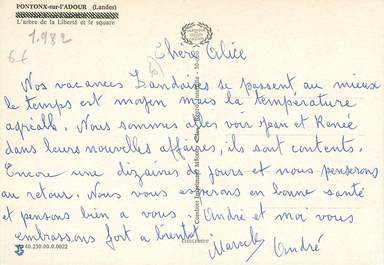 PONTONX-sur-l'ADOUR (Landes)
L'arbre de la Liberté et le square
1.982
6f
Chère Alice
Nos vacances Landaises se passent au mieux
le temps est moyen mais la température
agréable. Nous sommes allés voir Jean et Renée
dans leurs nouvelles affaires, ils sont contents.
Encore une dizaine de jours et nous penserons
au retour. Nous vous espérons en bonne santé
et pensons bien a vous. André et moi vous
embrassons fort a bientot
Marcelle André
40.230.00.0.0022